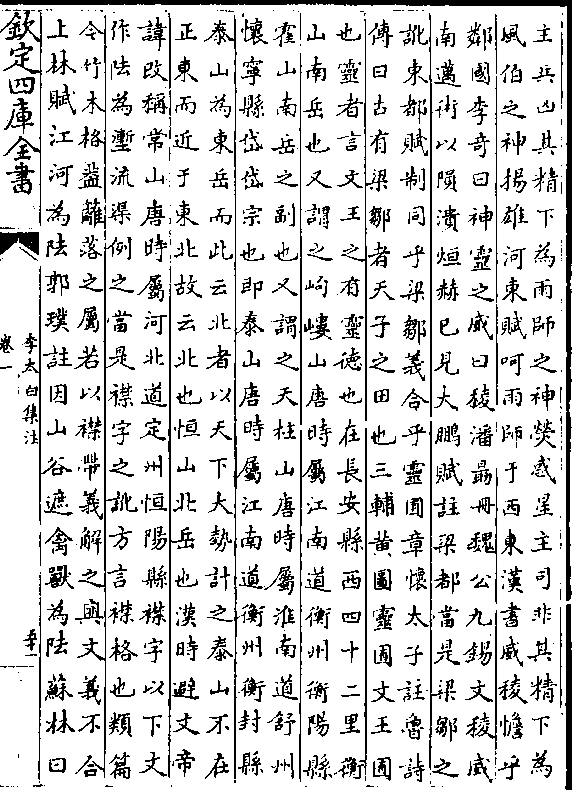 主兵凶其精下為雨師之神熒惑星主司非其精下為
風伯之神揚雄河東賦呵雨師于西東漢書威稜憺乎
鄰國李奇曰神靈之威曰稜潘朂冊魏公九錫文稜威
南邁術以隕潰烜赫已見大鵬賦註梁都當是梁鄒之
訛東都賦制同乎梁鄒義合乎靈囿章懷太子註魯詩
傳曰古有梁鄒者天子之田也三輔黃圖靈囿文王囿
也靈者言文王之有靈德也在長安縣西四十二里衡
山南岳也又謂之岣嶁山唐時屬江南道衡州衡陽縣
霍山南岳之副也又謂之天柱山唐時屬淮南道舒州
懷寧縣岱岱宗也即泰山唐時屬江南道衡州衡封縣
泰山為東岳而此云北者以天下大勢計之泰山不在
正東而近于東北故云北也恒山北岳也漢時避文帝
諱改稱常山唐時屬河北道定州恒陽縣襍字以下文
作阹為壍流渠例之當是襍字之訛方言襍格也類篇
令竹木格葢籬落之屬若以襍帶義解之與文義不合
上林賦江河為阹郭璞註因山谷遮禽獸為阹蘇林曰
欽定四庫全書
李太白集注
卷一